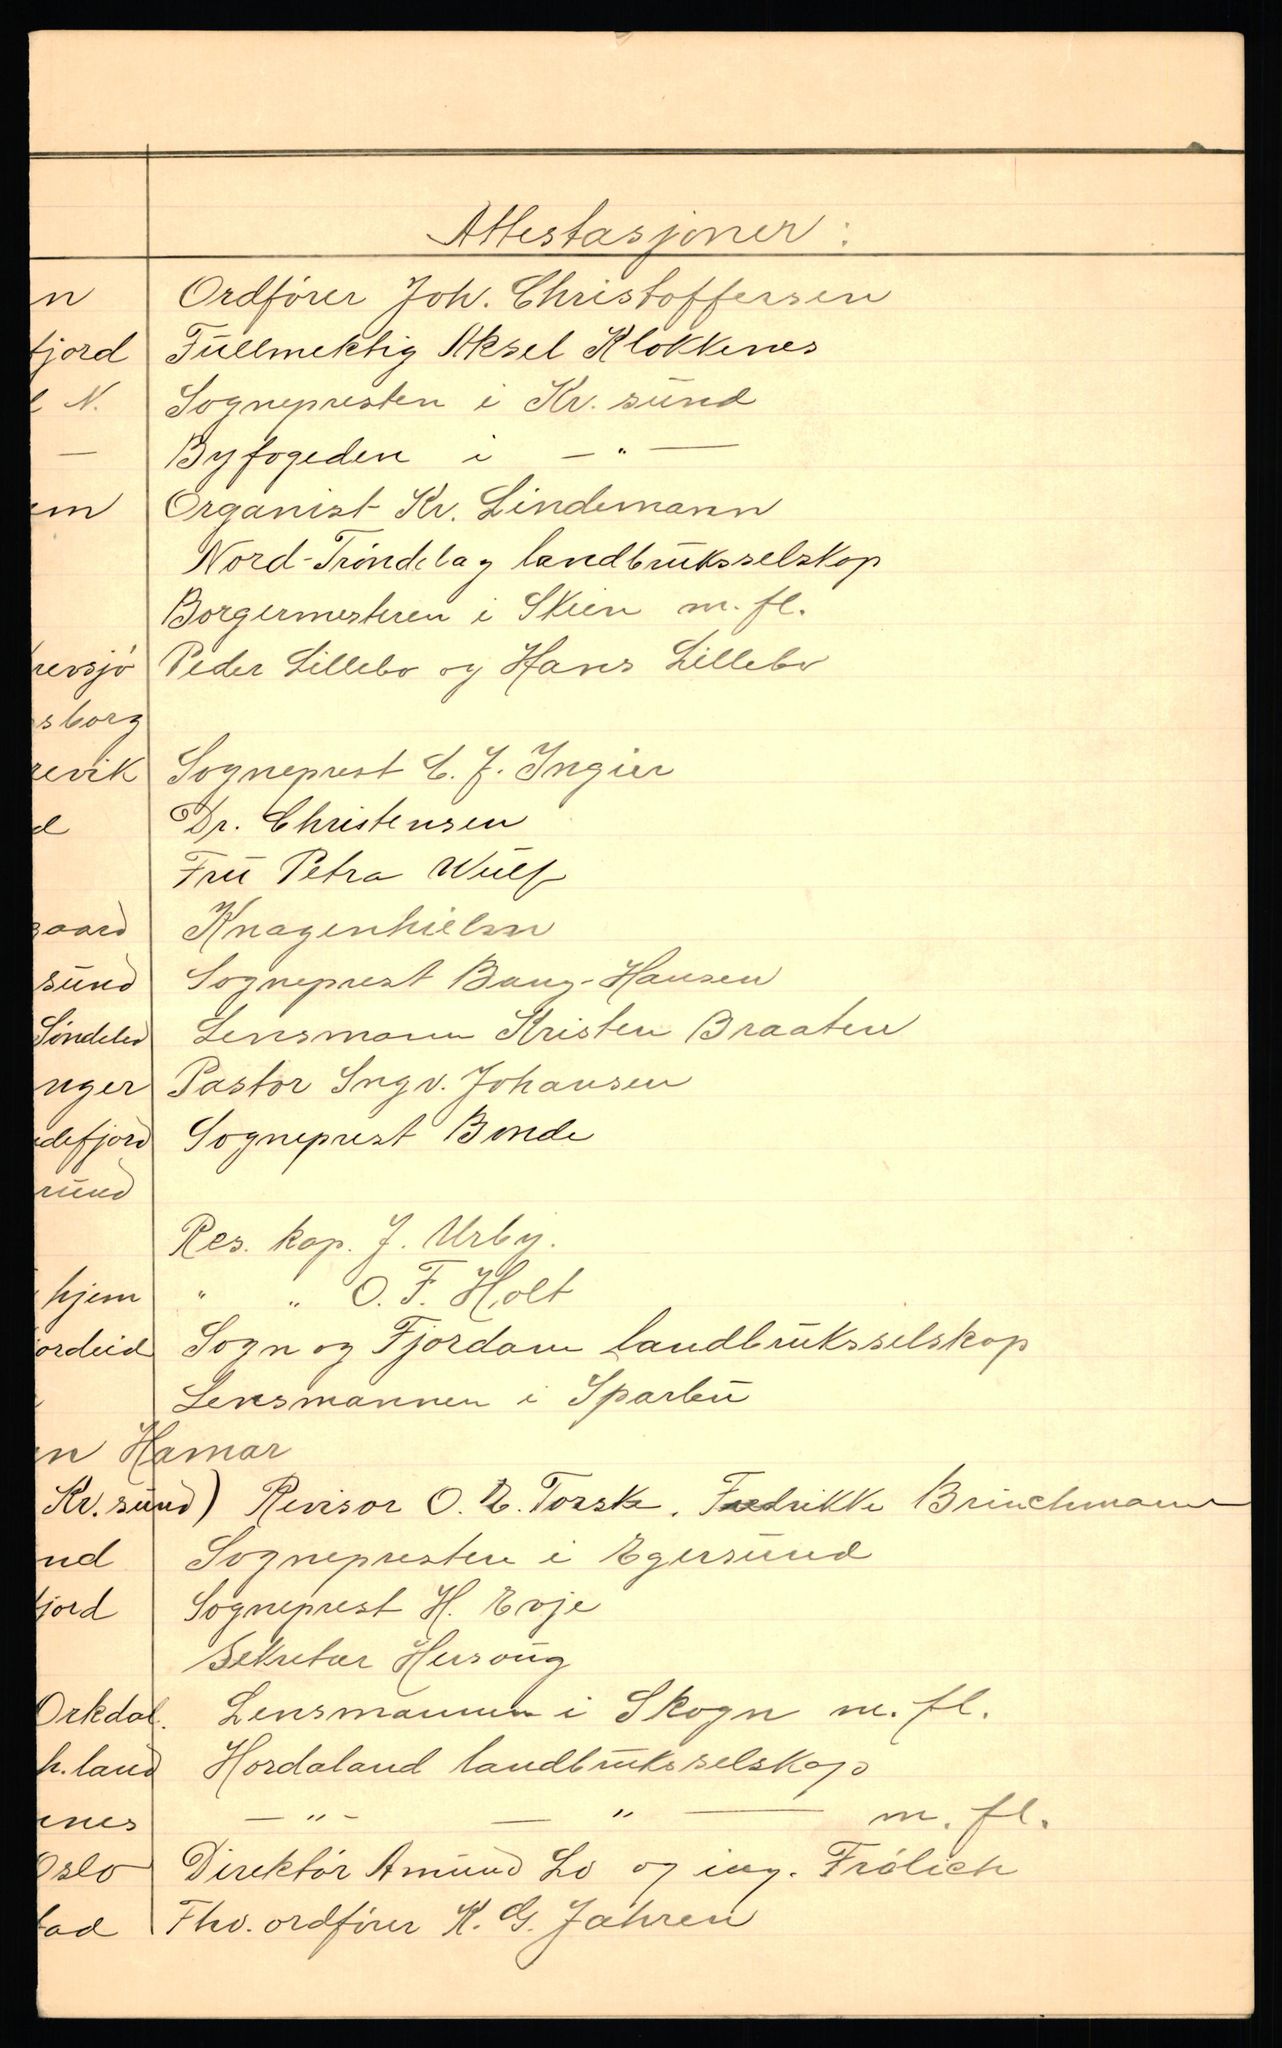 Attestasjoner:
n Ordfører Joh. Christoffersen
fjord Fullmektig Aksel Klokkenes
N. Sognepresten i Kr. sund
— Byfogeden i — " —
em Organist Kr. Lindemann
Nord-Trøndelag landbruksselskap
Borgermesteren i Skien m. fl.
revsjø Peder Lillebo og Hans Lillebo
sborg
revik Sogneprest E. J. Ingier
d Dr. Christensen
Fru Petra Wulf
gaard Knagenhielm
sund Sogneprest Bang-Hansen
Søndeled Lensmann Kristen Braaten
nger Pastor Ingv. Johansen
defjord Sogneprest Bonde
rund
Res. kap. J. Urby.
hjem " " O. F. Holt
ordeid Sogn og Fjordane landbruksselskap
Lensmannen i Sparbu
en Hamar
Kr. sund) Revisor O. E. Torsk. Fredrikke Brinchmann
nd Sognepresten i Egersund
fjord Sogneprest H. Evje
Sekretær Hersoug
Orkdal. Lensmannen i Skogn m. fl.
h.land Hordaland landbruksselskap
enes — " — — " — m. fl.
Oslo Direktør Amund Lo og ing. Frølich
tad Fhv. ordfører K. G. Jahren